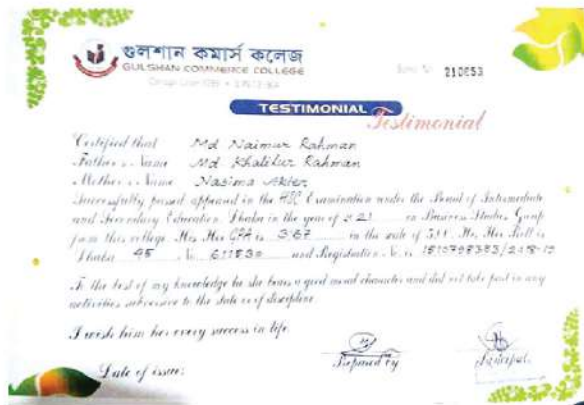 গুলশান কমার্স কলেজ
GULSHAN COMMERCE COLLEGE
210653
TESTIMONIAL
Testimonial
Certified that Md Naimur Rahman
Father's Name Md Khalilur Rahman
Mother's Name Nasima Akter
Successfully passed appeared in the HSC Examination under the Board of Intermediate
and Secondary Education, Dhaka in the year of in Business Studies Group
from this college. His Her GPA is 3.67 in the scale of 5.00. His Her Roll is
Dhaka 45 No. 611530 and Registration No. is
To the best of my knowledge he she bears a good moral character and did not take part in any
activities subversive to the state or of discipline
I wish him her every success in life.
Prepared by
Principal
Date of issue: